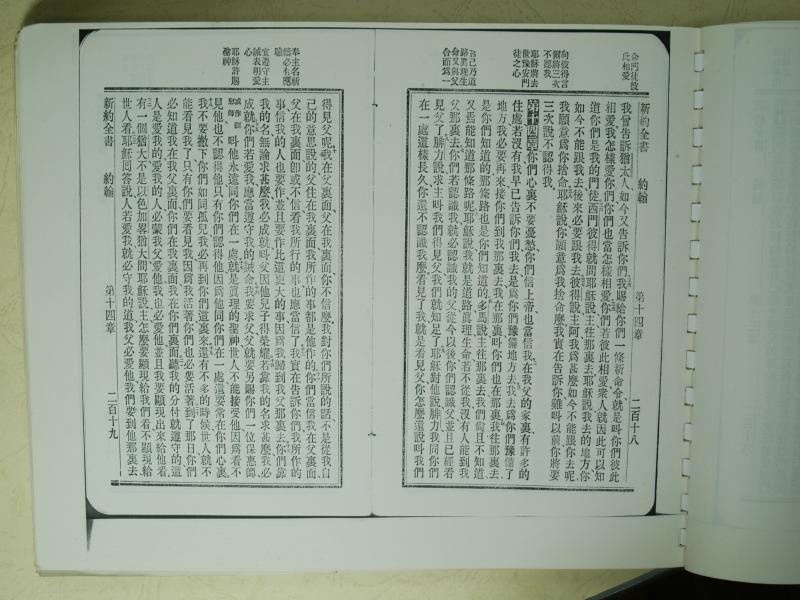 命門徒彼
此相愛
向彼得言
爾將三次
不認我
耶穌將去
世豫安門
徒之心
言己乃道
路眞理生
命又與父
合而爲一
新約全書 約翰 第十四章 二百十八
我曾告訴猶太人、如今又告訴你們、我賜給你們一條新命令、就是呌你們彼此
相愛、我怎樣愛你們、你們也當怎樣相愛、你們若彼此相愛、衆人就因此可以知
道你們是我的門徒、西門彼得就問耶穌說、主往那裏去、耶穌說、我去的地方、你
如今不能跟我去、後來必要跟我去、彼得說、主阿、我爲甚麼如今不能跟你去呢、
我願意爲你捨命、耶穌說、你願意爲我捨命麼、我實在告訴你、雞呌以前、你將要
三次說不認得我、
第十四章 你們心裏不要憂愁、你們信上帝、也當信我、在我父的家裏、有許多的
住處、若沒有我早已告訴你們、我去是爲你們豫備地方去、我去爲你們豫備了
地方、我必要再來接你們到我那裏去、我在那裏、呌你們也在那裏、我往那裏去、
是你們知道的、那條路也是你們知道的、多馬說、主往那裏去、我們尙且不知道、
又焉能知道那條路呢、耶穌說、我就是道路眞理生命、若不從我、沒有人能到我
父那裏去、你們若認識我、就必認識我的父、從今以後、你們認識父、並且已經看
見父了、腓力說、求主呌我們得見父、我們就知足了、耶穌對他說、腓力、我同你們
在一處這樣長久、你還不認識我麼、看見了我、就是看見父、你怎麼還說、呌我們
奉主名祈
禱必有應
驗
宜遵守主
誡表明愛
心
耶穌許賜
聖神
得見父呢、我在父裏面、父在我裏面、你不信麼、我對你們所說的話、不是從我自
己的意思說的、父住在我裏面、我所作的事、都是他作的、你們當信我在父裏面、
父在我裏面、卽或不信、看我所行的事、也應當信了、我實在告訴你們、我所作的
事、信我的人也要作、並且要作比這更大的事、因爲我歸到我父那裏去、你們靠
我的名、無論求甚麼、我必成就、呌父因他兒子得榮耀、若靠我的名求甚麼、我必
成就、你們若愛我、應當遵守我的誡命、我要求父、父就要另賜你們一位保惠師、
呌他永遠同你們在一處、就是眞理的聖神、世人不能接受他、因爲看不
見他、也不認得他、只有你們認得他、因爲他同你們在一處、還要常在你們心裏、
我不要撇下你們如同孤兒、我必再到你們這裏來、還有不多的時候、世人就不
能看見我了、只有你們要看見我、因爲我活著、你們也必要活著、到了那日、你們
必知道我在我父裏面、你們在我裏面、我在你們裏面、聽我的分付就遵守的、這
人是愛我的、愛我的人、必蒙我父愛他、我也必愛他、並且我要顯現出來給他看、
有一個猶大、不是以色加畧猶大、問耶穌說、主怎麼要顯現給我們看、不顯現給
世人看、耶穌回答說、人若愛我、就必守我的道、我父必愛他、我們要到他那裏去、
新約全書 約翰 第十四章 二百十九